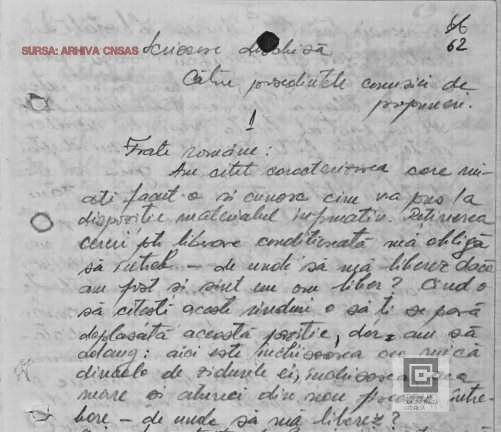 66
62
SURSA: ARHIVA CNSAS
Scrisoare deschisă
Către președintele comisiei de
propuneri.
1
Frate române:
Am citit caracterizarea care mi-
ați făcut-o și cunosc cine v-a pus la
dispoziție materialul informativ. Retinerea
cererii pt liberare condiționată mă obligă
să întreb – de unde să mă liberez dacă
am fost și sînt un om liber? Cînd o
să citești aceste rînduri o să ți se pară
deplasată această poziție, dar am să
adaug: aici este închisoarea cea mică
dincolo de zidurile ei, închisoarea cea
mare și atunci din nou între-
bare – de unde să mă liberez?